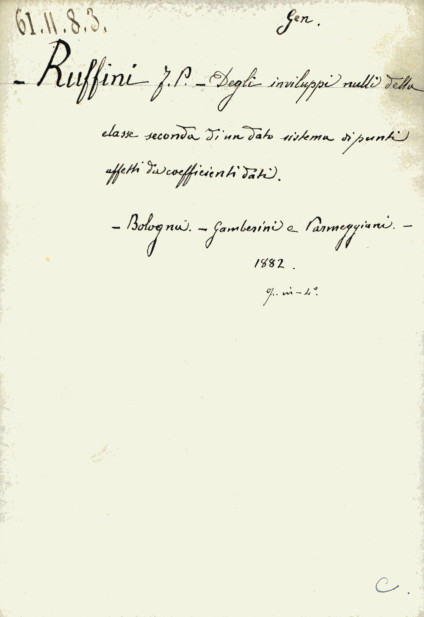 61.11.8.3.
Gen.
- Ruffini F. P. - Degli inviluppi nulli della
classe seconda di un dato sistema di punti
affetti da coefficienti dati.
- Bologna. - Gamberini e Parmeggiani. -
1882.
in-4°.
C.